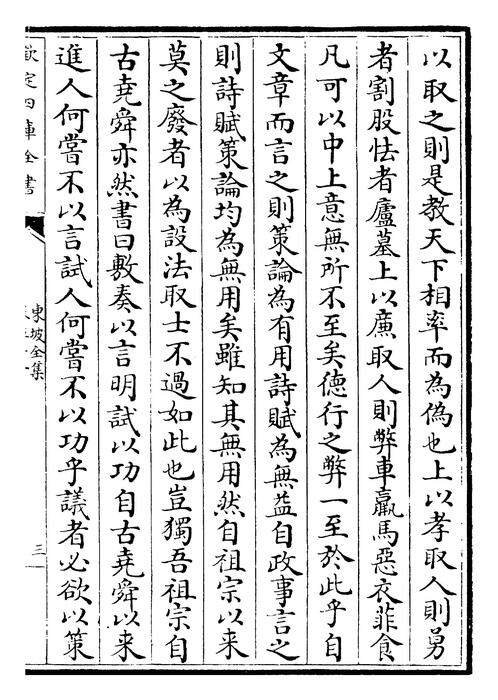 以取之則是教天下相率而為偽也上以孝取人則勇
者割股怯者廬墓上以亷取人則弊車羸馬惡衣菲食
凡可以中上意無所不至矣德行之弊一至於此乎自
文章而言之則策論為有用詩賦為無益自政事言之
則詩賦策論均為無用矣雖知其無用然自祖宗以来
莫之廢者以為設法取士不過如此也豈獨吾祖宗自
古堯舜亦然書曰敷奏以言明試以功自古堯舜以来
進人何嘗不以言試人何嘗不以功乎議者必欲以策
欽定四庫全書
東坡全集
三